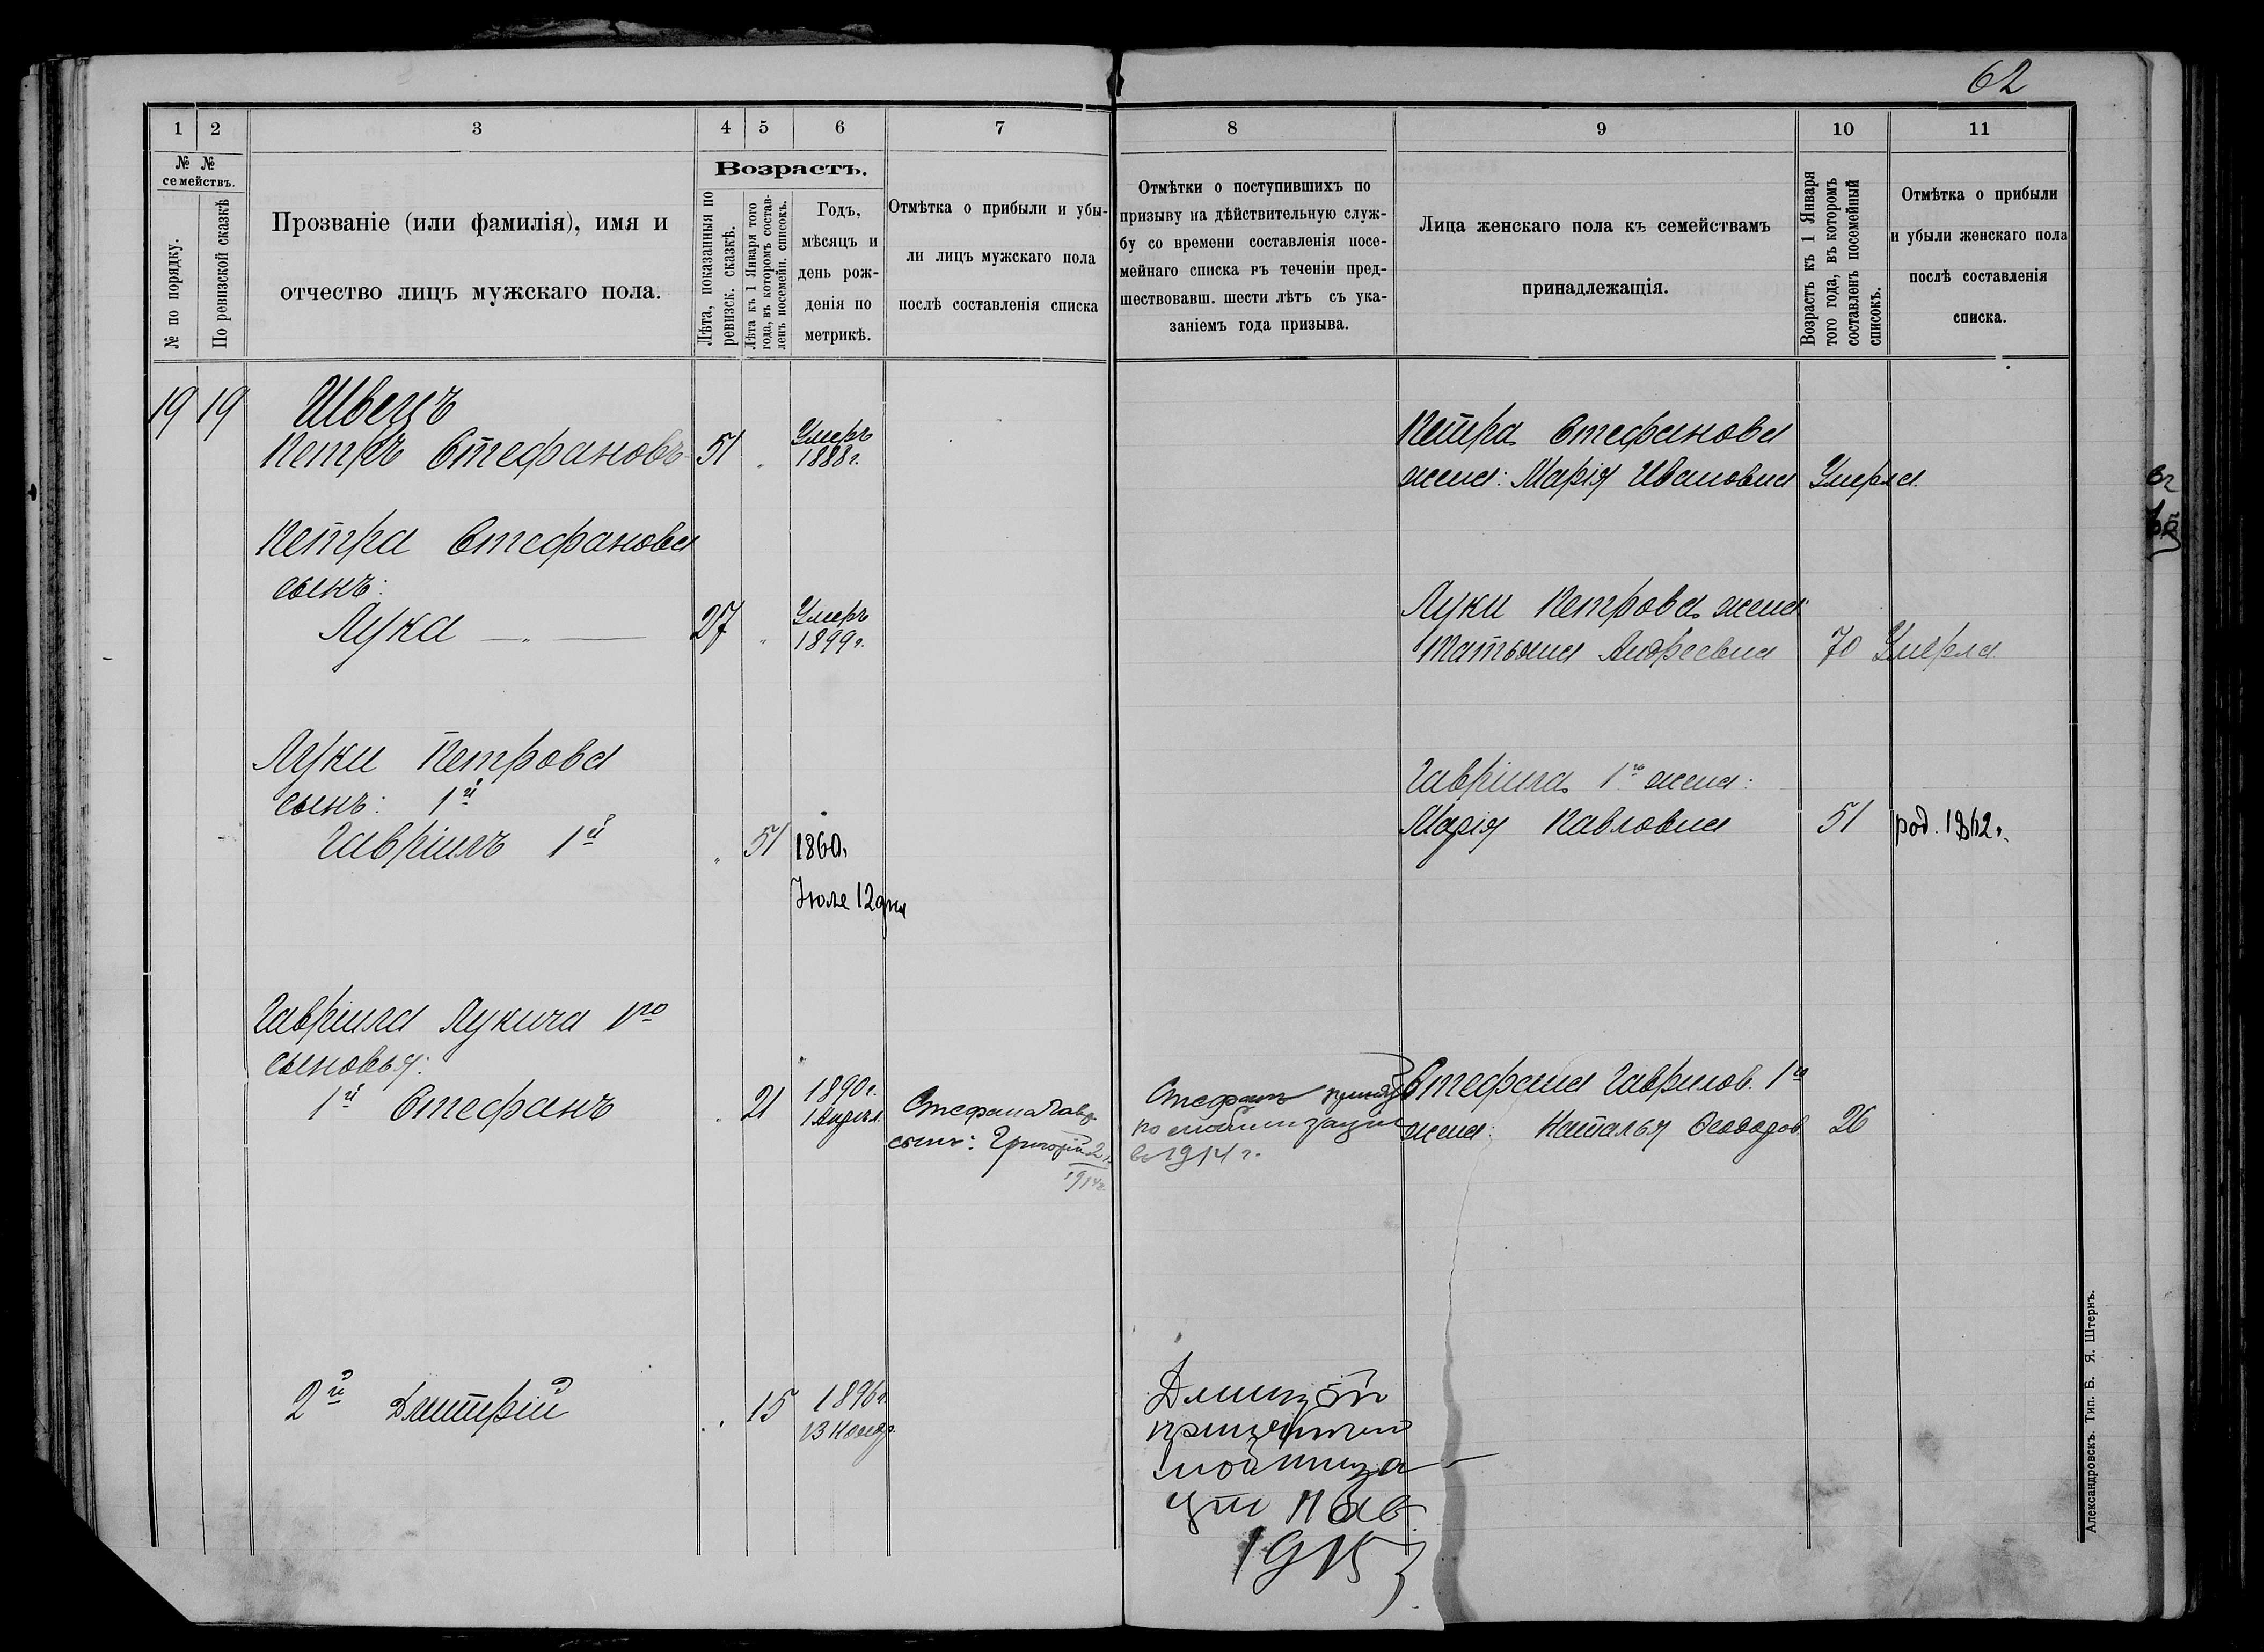 62
1
2
3
4
5
6
7
8
9
10
11
№ №
семействъ.
№ по порядку.
По ревизской сказкѣ
Прозваніе (или фамилія), имя и
отчество лицъ мужскаго пола.
Возрастъ.
Лѣта, показанныя по
ревизск. сказкѣ.
Лѣта къ 1 Января того
года, въ которомъ состав-
ленъ посемейн. списокъ.
Годъ,
мѣсяцъ и
день рож-
денія по
метрикѣ.
Отмѣтка о прибыли и убы-
ли лицъ мужскаго пола
послѣ составленія списка
Отмѣтки о поступившихъ по
призыву на дѣйствительную служ-
бу со времени составленія посе-
мейнаго списка въ теченіи пред-
шествовавш. шести лѣтъ съ ука-
заніемъ года призыва.
Лица женскаго пола къ семействамъ
принадлежащія.
Возрастъ къ 1 Января
того года, въ которомъ
составленъ посемейный
списокъ.
Отмѣтка о прибыли
и убыли женскаго пола
послѣ составленія
списка.
19 19 Швецъ
Петръ Стефановъ 51 Умеръ 1888 г.
Петра Стефанова
жена: Марія Ивановна Умерла.
Петра Стефанова
сынъ:
Лука 27 Умеръ 1899 г.
Луки Петрова жена
Татьяна Андреевна 70 Умерла
Луки Петрова
сынъ: 1й
Гавріилъ 1й 51 1860.
Іюле 12 дня
Гавріила 1го жена:
Марія Павловна 51 род. 1862 г.
Гавріила Лукича 1го
сыновья:
1й Стефанъ 21 1890 г.
1 Апрѣл.
Стефана Гавр.
сынъ: Григорій
1914 г.
Стефанъ
по мобилизации
в 1914 г.
Стефана Гаврилов. 1го
жена: Наталья Феодоров. 26
2й Дмитрій 15 1896 г.
Дмитрій
1915
Александровскъ. Тип. Б. Я. Штернъ.